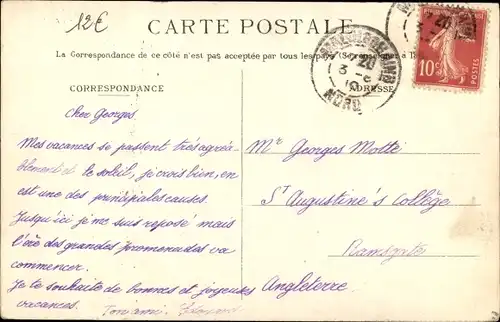 12€
CARTE POSTALE
La Correspondance de ce côté n'est pas acceptée par tous les pays (Se renseigner à
CORRESPONDANCE
ADRESSE
10
NORD
10c
Cher Georges.
Mes vacances se passent très agréa-
blement et le soleil, je crois bien, en
est une des principales causes.
Jusqu'ici je me suis reposé mais
l'ère des grandes promenades va
commencer.
Je te souhaite de bonnes et joyeuses
vacances.
Ton ami. Edouard
Mr Georges Motte
St Augustine's Collège
Ramsgate
Angleterre